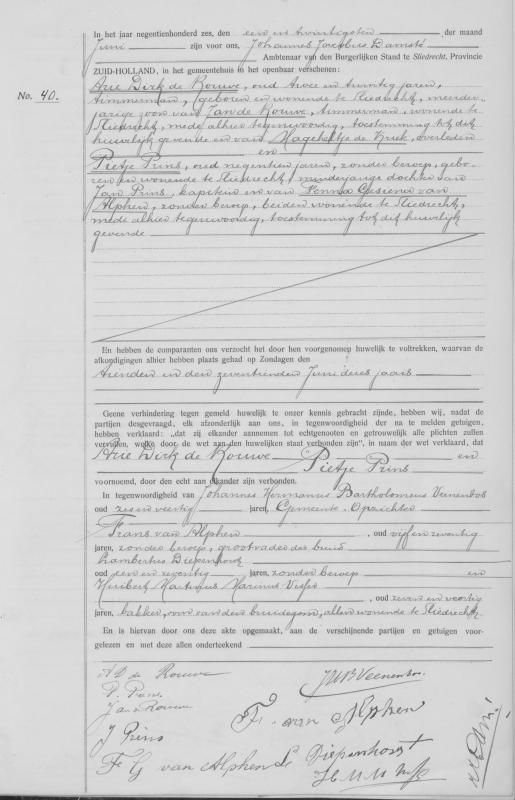 In het jaar negentienhonderd zes, den een en twintigsten, der maand
Juni zijn voor ons, Johannes Jacobus Damsté
Ambtenaar van den Burgerlijken Stand te Sliedrecht, Provincie
ZUID-HOLLAND, in het gemeentehuis in het openbaar verschenen:
No. 40.
Arie Dirk de Rouwe, oud twee en twintig jaren,
timmerman, geboren en wonende te Sliedrecht, meerder-
jarige zoon van Jan de Rouwe, timmerman, wonende te
Sliedrecht, mede alhier tegenwoordig, toestemming tot dit
huwelijk gevende en van de Kruk, overleden
en
Pietje Prins, oud negentien jaren, zonder beroep, gebo-
ren en wonende te Sliedrecht, minderjarige dochter van
Jan Prins, kapitein en van van
Alphen, zonder beroep, beiden wonende te Sliedrecht,
mede alhier tegenwoordig, toestemming tot dit huwelijk
gevende
En hebben de comparanten ons verzocht het door hen voorgenomen huwelijk te voltrekken, waarvan de
afkondigingen alhier hebben plaats gehad op Zondagen den
tienden en den zeventienden Juni dezes jaars
Geene verhindering tegen gemeld huwelijk te onzer kennis gebracht zijnde, hebben wij, nadat de
partijen desgevraagd, elk afzonderlijk aan ons, in tegenwoordigheid der na te melden getuigen,
hebben verklaard: „dat zij elkander aannemen tot echtgenooten en getrouwelijk alle plichten zullen
vervullen, welke door de wet aan den huwelijken staat verbonden zijn", in naam der wet verklaard, dat
Arie Dirk de Rouwe en
Pietje Prins
voornoemd, door den echt aan elkander zijn verbonden.
In tegenwoordigheid van Johannes Hermanus Bartholomeus Veenenbos
oud zes en veertig jaren, Gemeente-Opzichter
Frans van Alphen, oud vijf en zeventig
jaren, zonder beroep, grootvader der bruid
Lambertus Diepenhorst
oud en zeventig jaren, zonder beroep en
Huibert Martinus Marinus Visser
, oud zeven en veertig
jaren, bakker, oom van den bruidegom, allen wonende te Sliedrecht.
En is hiervan door ons deze akte opgemaakt, aan de verschijnende partijen en getuigen voor-
gelezen en met deze allen onderteekend
A D de Rouwe
P. Prins
Jan de Rouwe
J Prins
JHB Veenenbos
F. van Alphen
F G van Alphen
L Diepenhorst